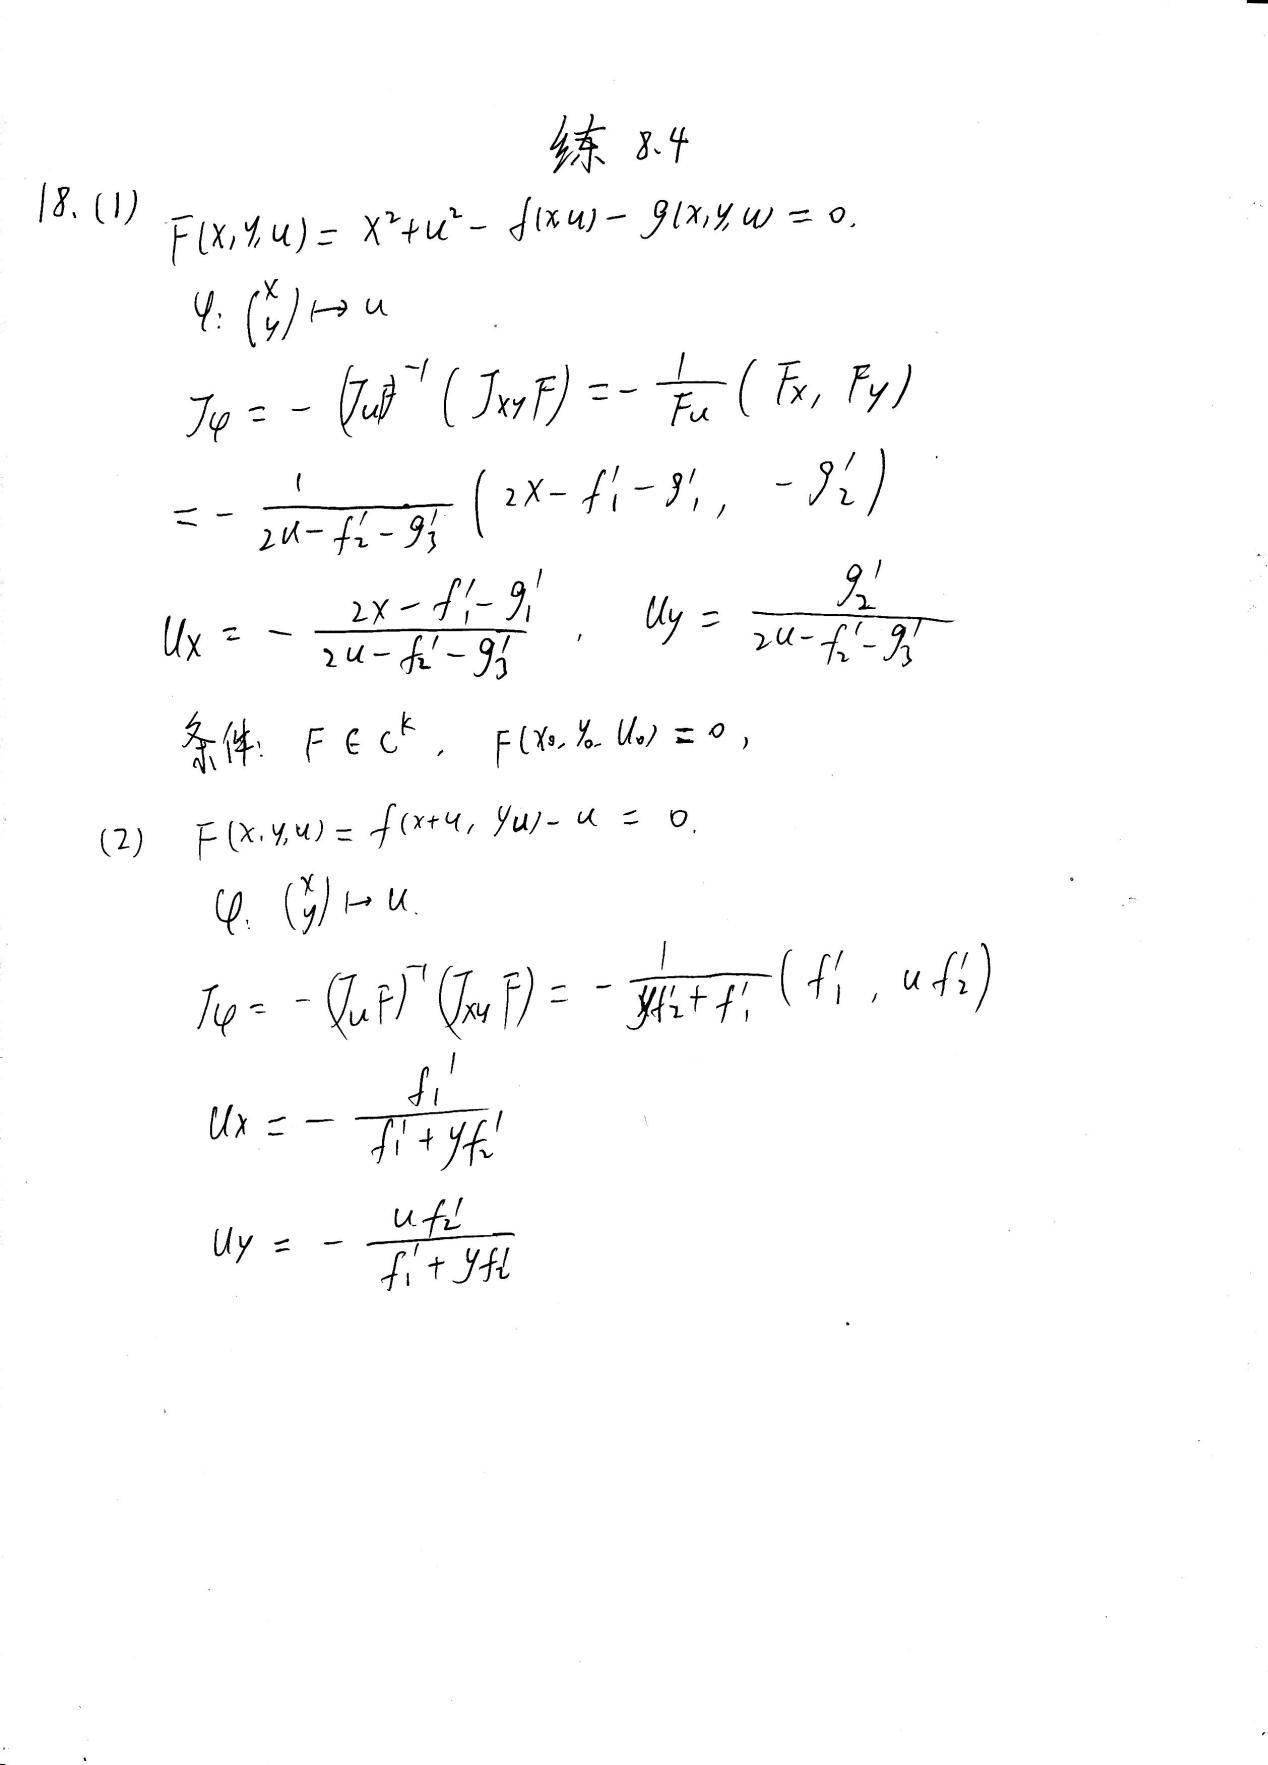 练 8.4
18. (1) F(x, y, u) = x² + u² - f(x u) - g(x, y, u) = 0.
φ: (x y) ↦ u
Jφ = - (JuF)⁻¹ (JxyF) = - 1/Fu (Fx, Fy)
= - 1/(2u - f₂' - g₃') (2x - f₁' - g₁', - g₂')
Ux = - (2x - f₁' - g₁')/(2u - f₂' - g₃') , Uy = g₂'/(2u - f₂' - g₃')
条件: F ∈ Cᵏ, F(x₀, y₀, u₀) = 0,
(2) F(x, y, u) = f(x+u, yu) - u = 0.
φ: (x y) ↦ u.
Jφ = - (JuF)⁻¹ (JxyF) = - 1/(yf₂' + f₁') (f₁', u f₂')
Ux = - f₁'/(f₁' + yf₂')
Uy = - u f₂'/(f₁' + yf₂')